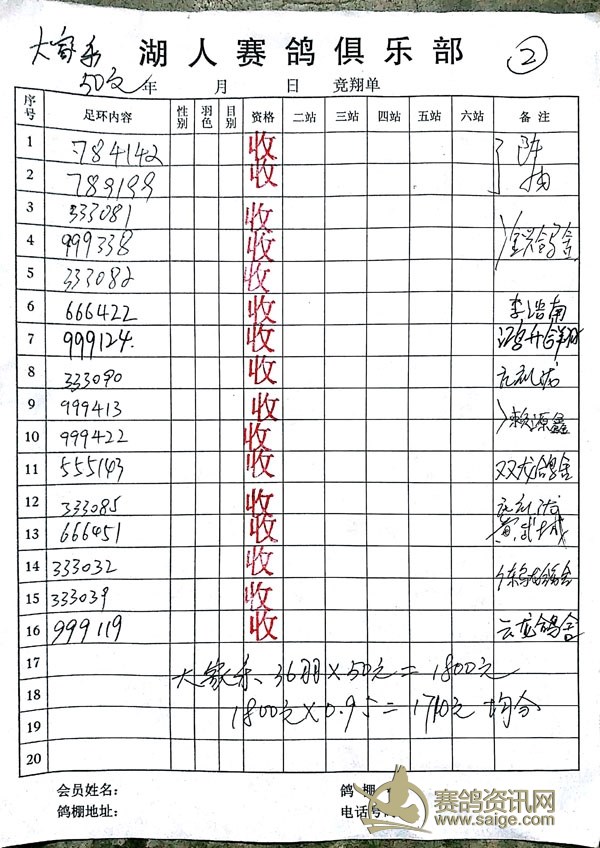 大家乐 湖人赛鸽俱乐部 ②
50元 年 月 日 竞翔单
序号 足环内容 性别 羽色 目别 资格 二站 三站 四站 五站 六站 备注
1 784142 收
2 789199 收
3 333081 收
4 999338 收
5 333082 收
6 666422 收 李浩南
7 999124 收
8 333090 收
9 999413 收 赖源鑫
10 999422 收
11 555143 收 双龙鸽舍
12 333085 收
13 666451 收
14 333032 收
15 333039 收
16 999119 收 云龙鸽舍
17 大家乐、36羽×50元=1800元
18 1800元×0.95=1710元 均分
19
20
会员姓名: 鸽棚
鸽棚地址: 电话号
赛鸽资讯网
www.saige.com